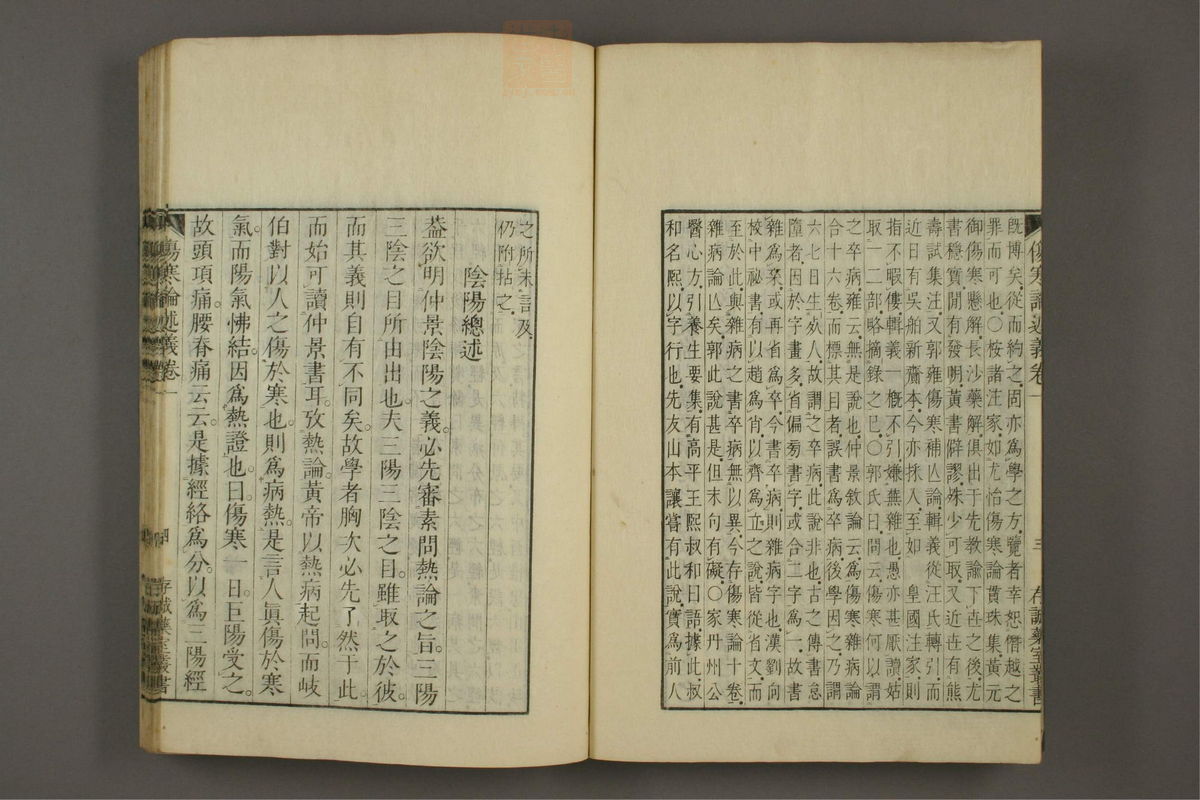 傷寒論述義卷一 三 存誠藥室叢書
既博矣從而約之固亦爲學之方覽者幸恕僭越之
罪而可也○桉諸注家如尤怡傷寒論貫珠集黃元
御傷寒懸解長沙藥解俱出于先教諭下世之後尤
書穩實閒有發明黃書僻謬殊少可取又近世有熊
壽試集注又郭雍傷寒補亾論輯義從汪氏轉引而
近日有吳舶新齎本今亦採入至如 皇國注家則
指不暇僂輯義一槪不引嫌蕪雜也愚亦甚厭讀姑
取一二部略摘錄之已○郭氏曰問云傷寒何以謂
之卒病雍云無是說也仲景敘論云爲傷寒雜病論
合十六卷而標其目者誤書爲卒病後學因之乃謂
六七日生死人故謂之卒病此說非也古之傳書怠
墮者因於字畫多省偏旁書字或合二字爲一故書
雜爲桒或再省爲卒今書卒病則雜病字也漢劉向
校中祕書有以趙爲肖以齊爲立之說皆從省文而
至於此與雜病之書卒病無以異今存傷寒論十卷
雜病論亾矣郭此說甚是但末句有礙○家丹州公
醫心方引養生要集有高平王熙叔和曰語據此叔
和名熙以字行也先友山本讓嘗有此說實爲前人
之所未言及
仍附拈之
陰陽總述
葢欲明仲景陰陽之義必先審素問熱論之旨三陽
三陰之目所由出也夫三陽三陰之目雖取之於彼
而其義則自有不同矣故學者胸次必先了然于此
而始可讀仲景書耳攷熱論黃帝以熱病起問而岐
伯對以人之傷於寒也則爲病熱是言人眞傷於寒
氣而陽氣怫結因爲熱證也曰傷寒一日巨陽受之
故頭項痛腰脊痛云云是據經絡爲分以爲三陽經
傷寒論述義卷一 四 存誠藥室叢書